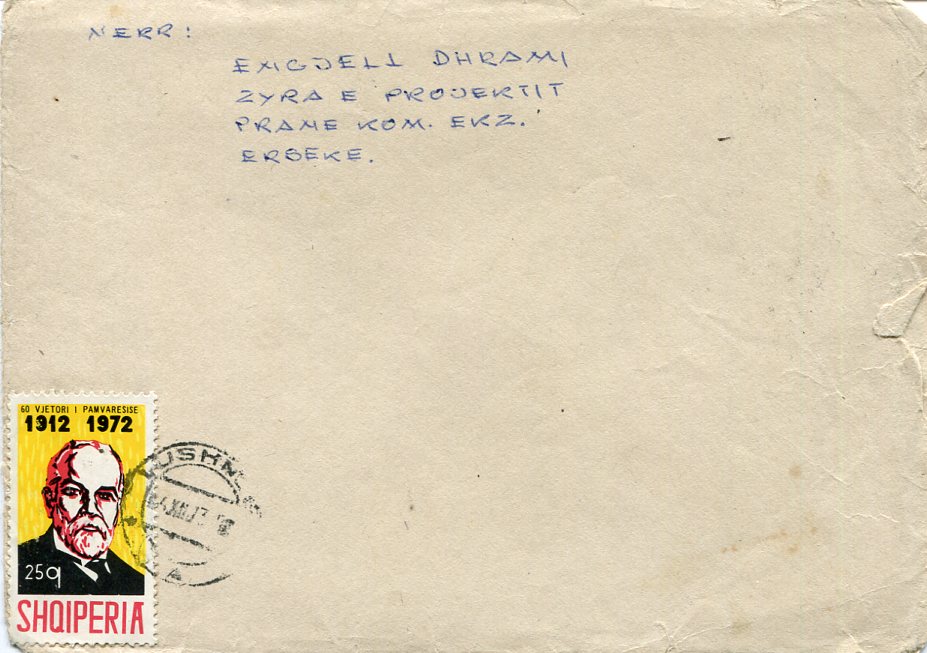 NERR:
ENGJELL DHRAMI
ZYRA E PROJEKTIT
PRANE KOM. EKZ.
ERSEKE.
60 VJETORI I PAMVARESISE
1912 1972
25q
SHQIPERIA
USHN